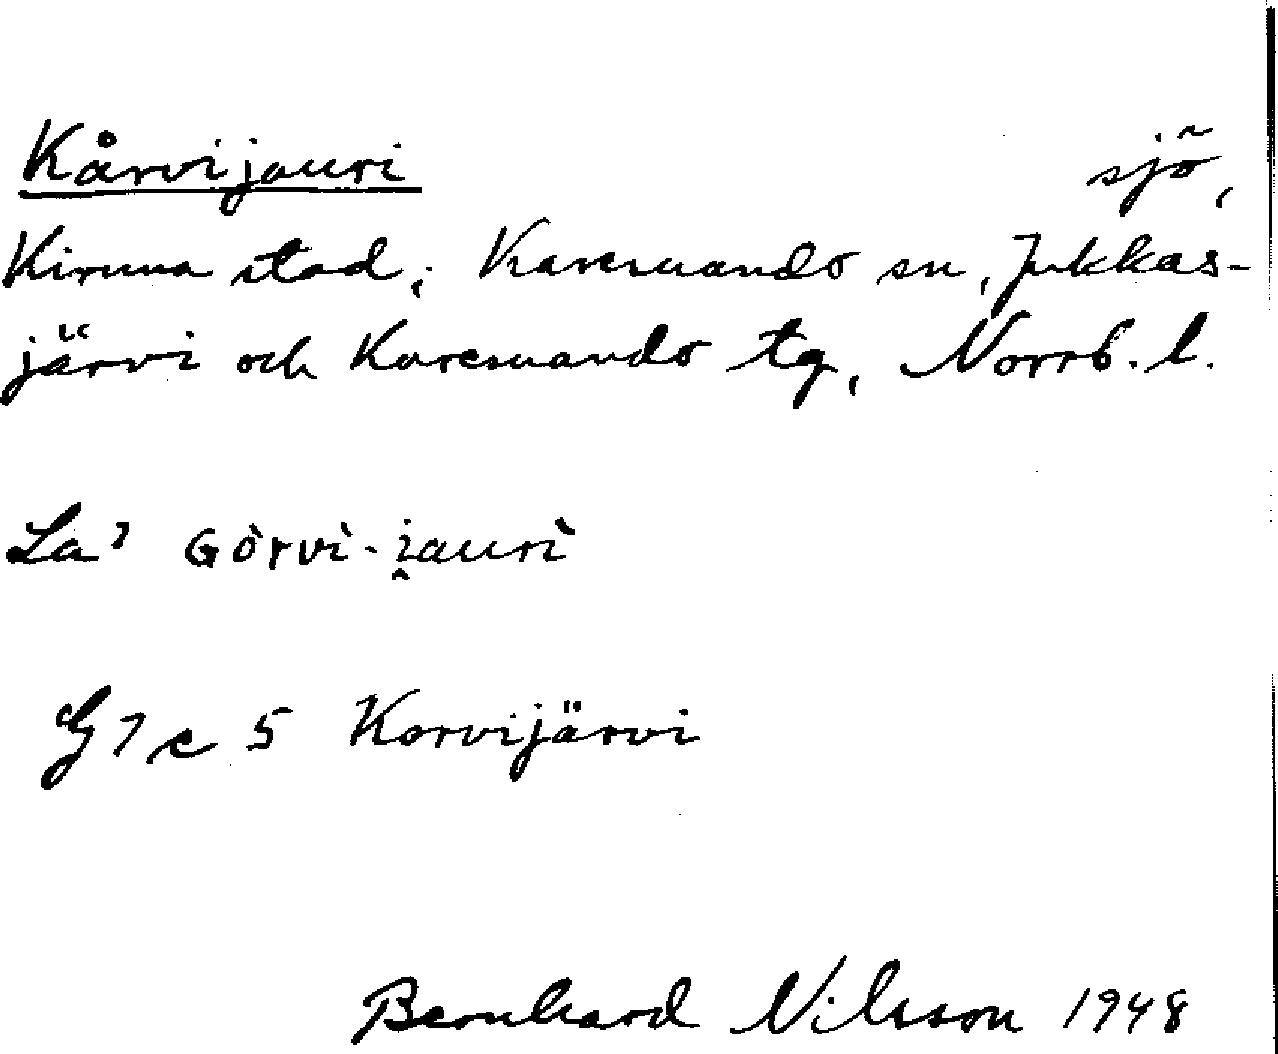 Kårvijauri sjö,
Kiruna stad; Karesuando sn, Jukkas-
järvi och Karesuando tg, Norrb. l.
La' Gòrvì-i̯aurì
G 7 c 5 Korvijärvi
Bernhard Nilsson 1948